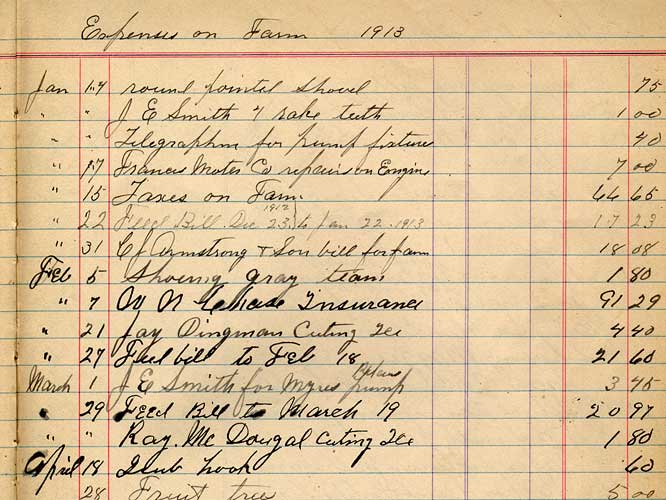 Expenses on Farm 1913
Jan 14 round pointed shovel 75
" " J E Smith 4 rake teeth 1 00
" " Telegraphing for pump fixture 40
" 17 Francis Motor Co repairs on Engine 7 00
" 15 Taxes on Farm 65
" 22 Feed Bill Dec 23 1912 to Jan 22 1913 17 23
" 31 CJ Armstrong & Son bill for farm 18 08
Feb 5 Shoeing gray team 1 80
" 7 W N Chase Insurance 91 29
" 21 Jay Dingman Cuting Ice 4 40
" 27 Fuel bill to Feb 18 21 60
March 1 J E Smith for Myres pump 3 45
" 29 Feed Bill to March 19 20 97
" " Ray. Mc Dougal Cuting Ice 1 80
April 18 hook 60
28 Fruit tree 5 00